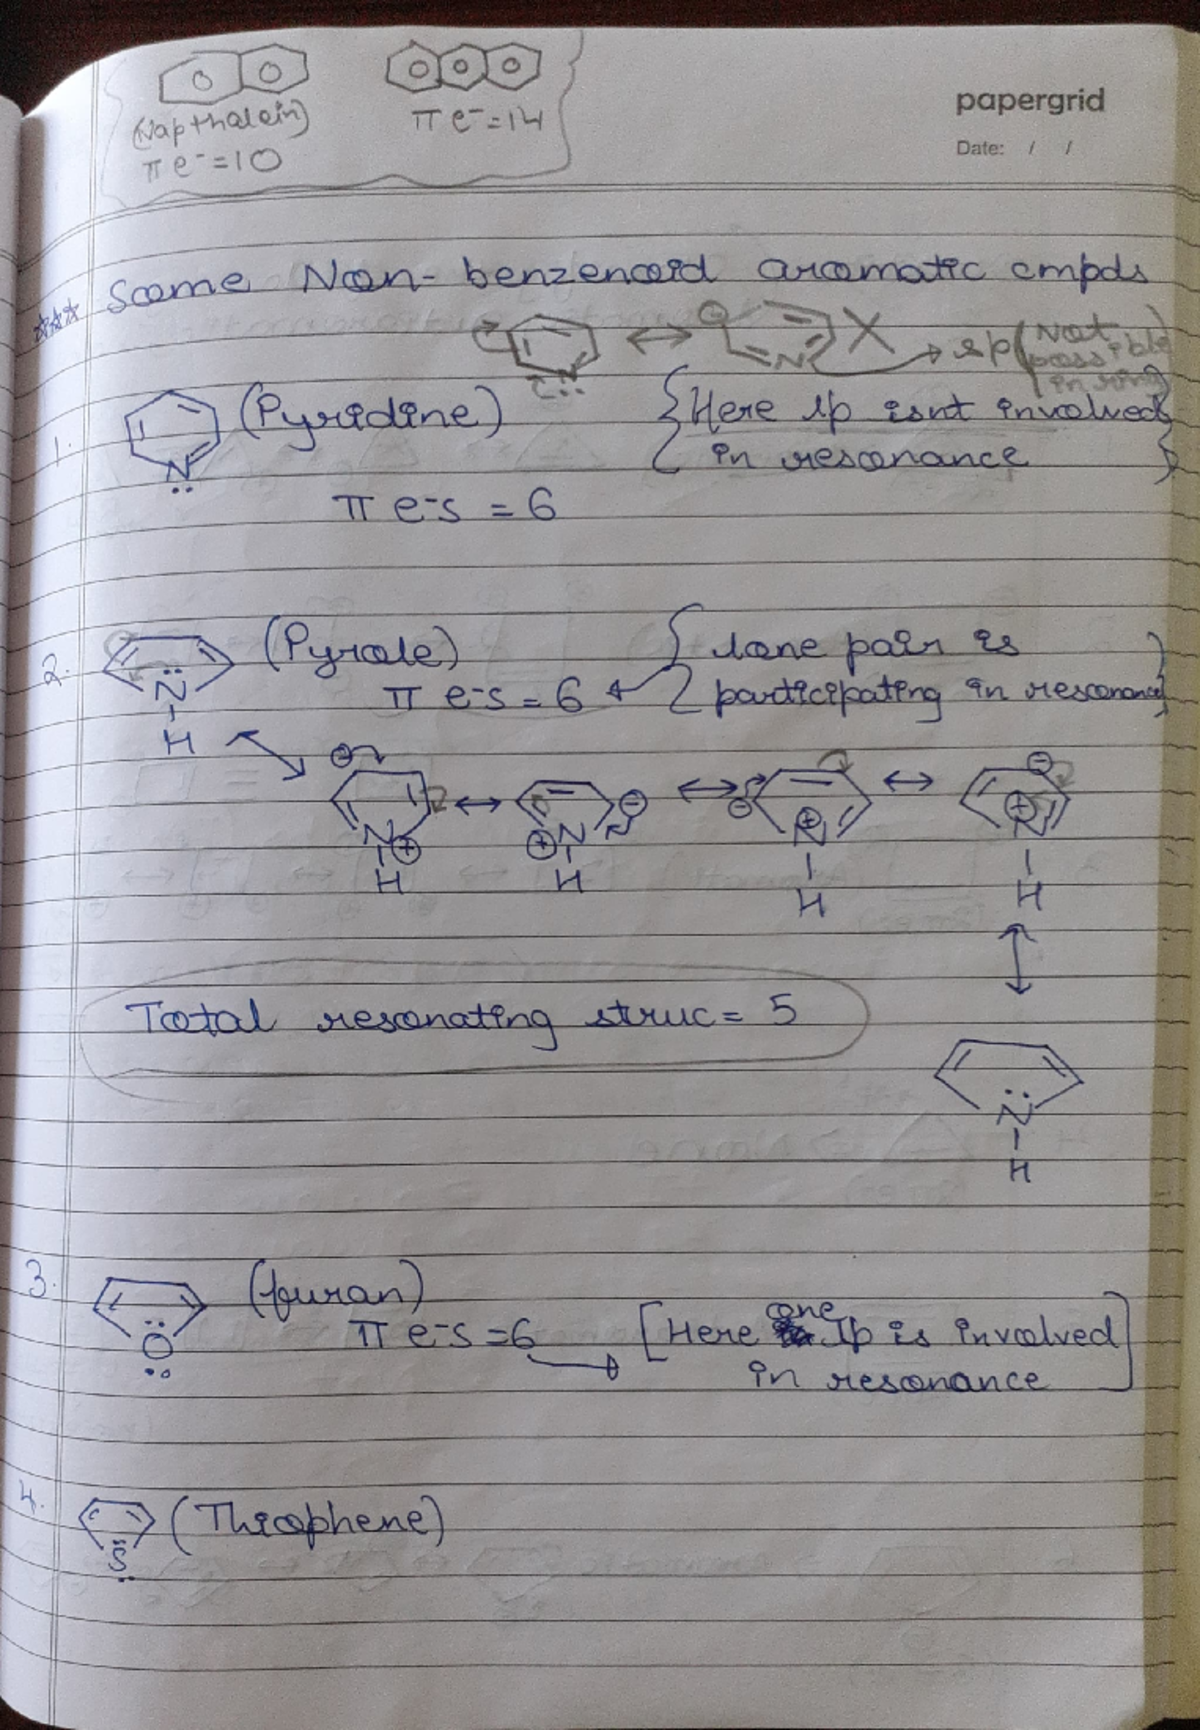 papergrid
Date: / /
(Napthalein)
π e⁻ = 10
π e⁻ = 14
*** Some Non-benzenoid aromatic cmpds
⊖ N N X → sp (Not possible in ring)
1. N (Pyridine)
{Here lp isnt involved
in resonance}
π e⁻s = 6
2. N H (Pyrole)
π e⁻s = 6
{lone pair is
participating in resonance}
⊖ N ⊕ H ↔ ⊕ N ⊖ H ↔ ⊖ ⊕ N H ↔ ⊖ ⊕ N H
Total resonating struc = 5
N
H
3. O (furan)
π e⁻s = 6 → [Here one lp is involved
in resonance]
4. S (Thiophene)